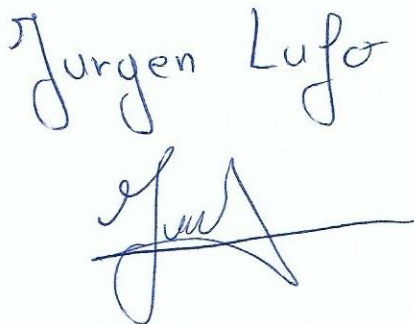 Jurgen Lufo